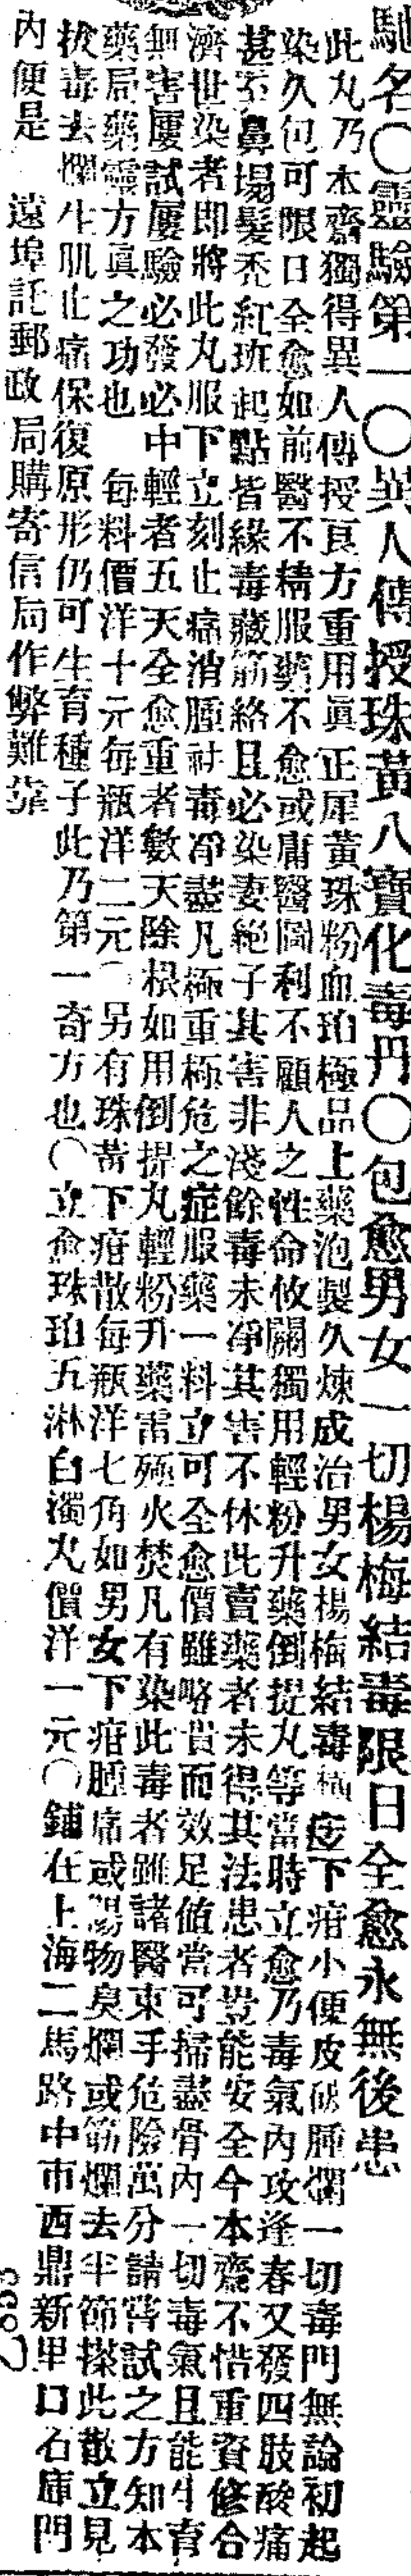 馳名○靈驗第一○異人傳授珠黃八寶化毒丹○包愈男女一切楊梅結毒限日全愈永無後患
此丸乃本齋獨得異人傳授良方重用眞正犀黃珠粉血珀極品上藥泡製久煉成治男女楊梅結毒橫痃下疳小便皮破腫爛一切毒門無論初起
染久包可限日全愈如前醫不精服藥不愈或庸醫圖利不顧人之性命攸關獨用輕粉升藥倒提丸等當時立愈乃毒氣內攻逢春又發四肢酸痛
甚至鼻塌髮禿紅班起點皆緣毒藏筋絡且必染妻絶子其害非淺餘毒未凈其害不休此賣藥者未得其法患者豈能安全今本齋不惜重資修合
濟世染者即將此丸服下立刻止痛消腫祛毒凈盡凡極重極危之症服藥一料立可全愈價雖略貴而效足值當可掃盡骨內一切毒氣且能生育
無害屢試屢驗必發必中輕者五天全愈重者數天除根如用倒提丸輕粉升藥雷殛火焚凡有染此毒者雖諸醫束手危險萬分請嘗試之方知本
藥局藥靈方眞之功也　每料價洋十元每瓶洋二元○另有珠黃下疳散每瓶洋七角如男女下疳腫痛或陽物臭爛或筋爛去半節搽此散立見
拔毒去爛生肌止痛保復原形仍可生育種子此乃第一奇方也○立愈珠珀五淋白濁丸價洋一元○鋪在上海二馬路中市西鼎新里口石庫門
內便是　遠埠託郵政局購寄信局作弊難靠